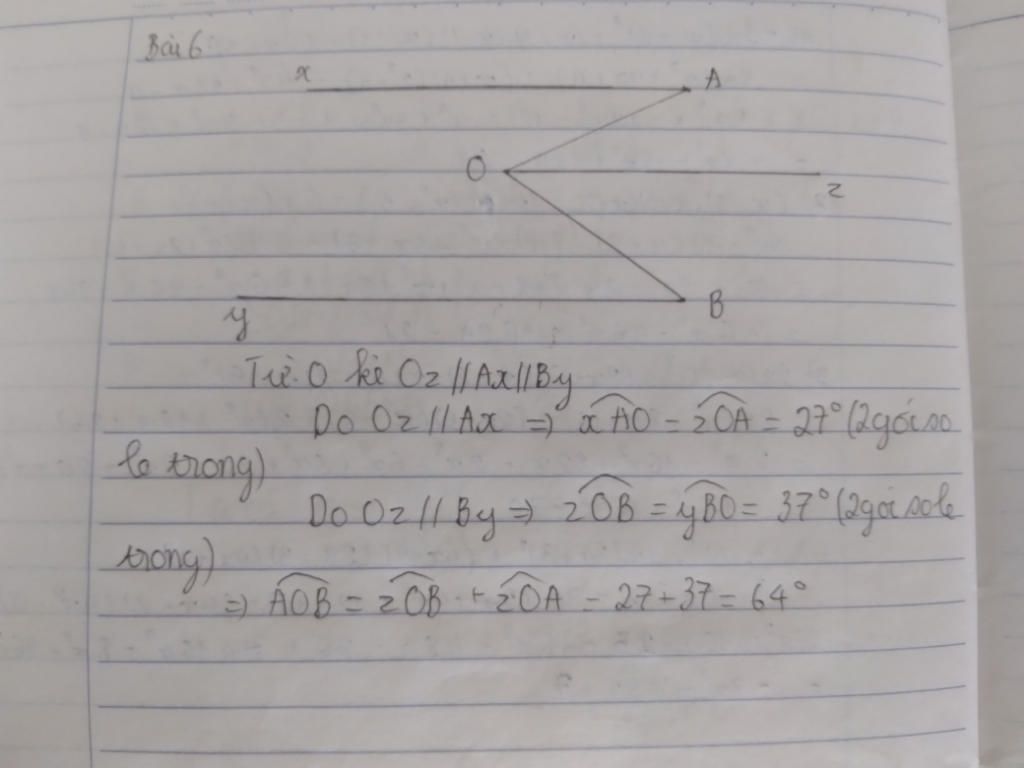 Bài 6
x A
O z
y B
Từ O kẻ Oz // Ax // By
Do Oz // Ax => xAO = zOA = 27° (2 góc so
le trong)
Do Oz // By => zOB = yBO = 37° (2 góc so le
trong)
=> AOB = zOB + zOA = 27 + 37 = 64°